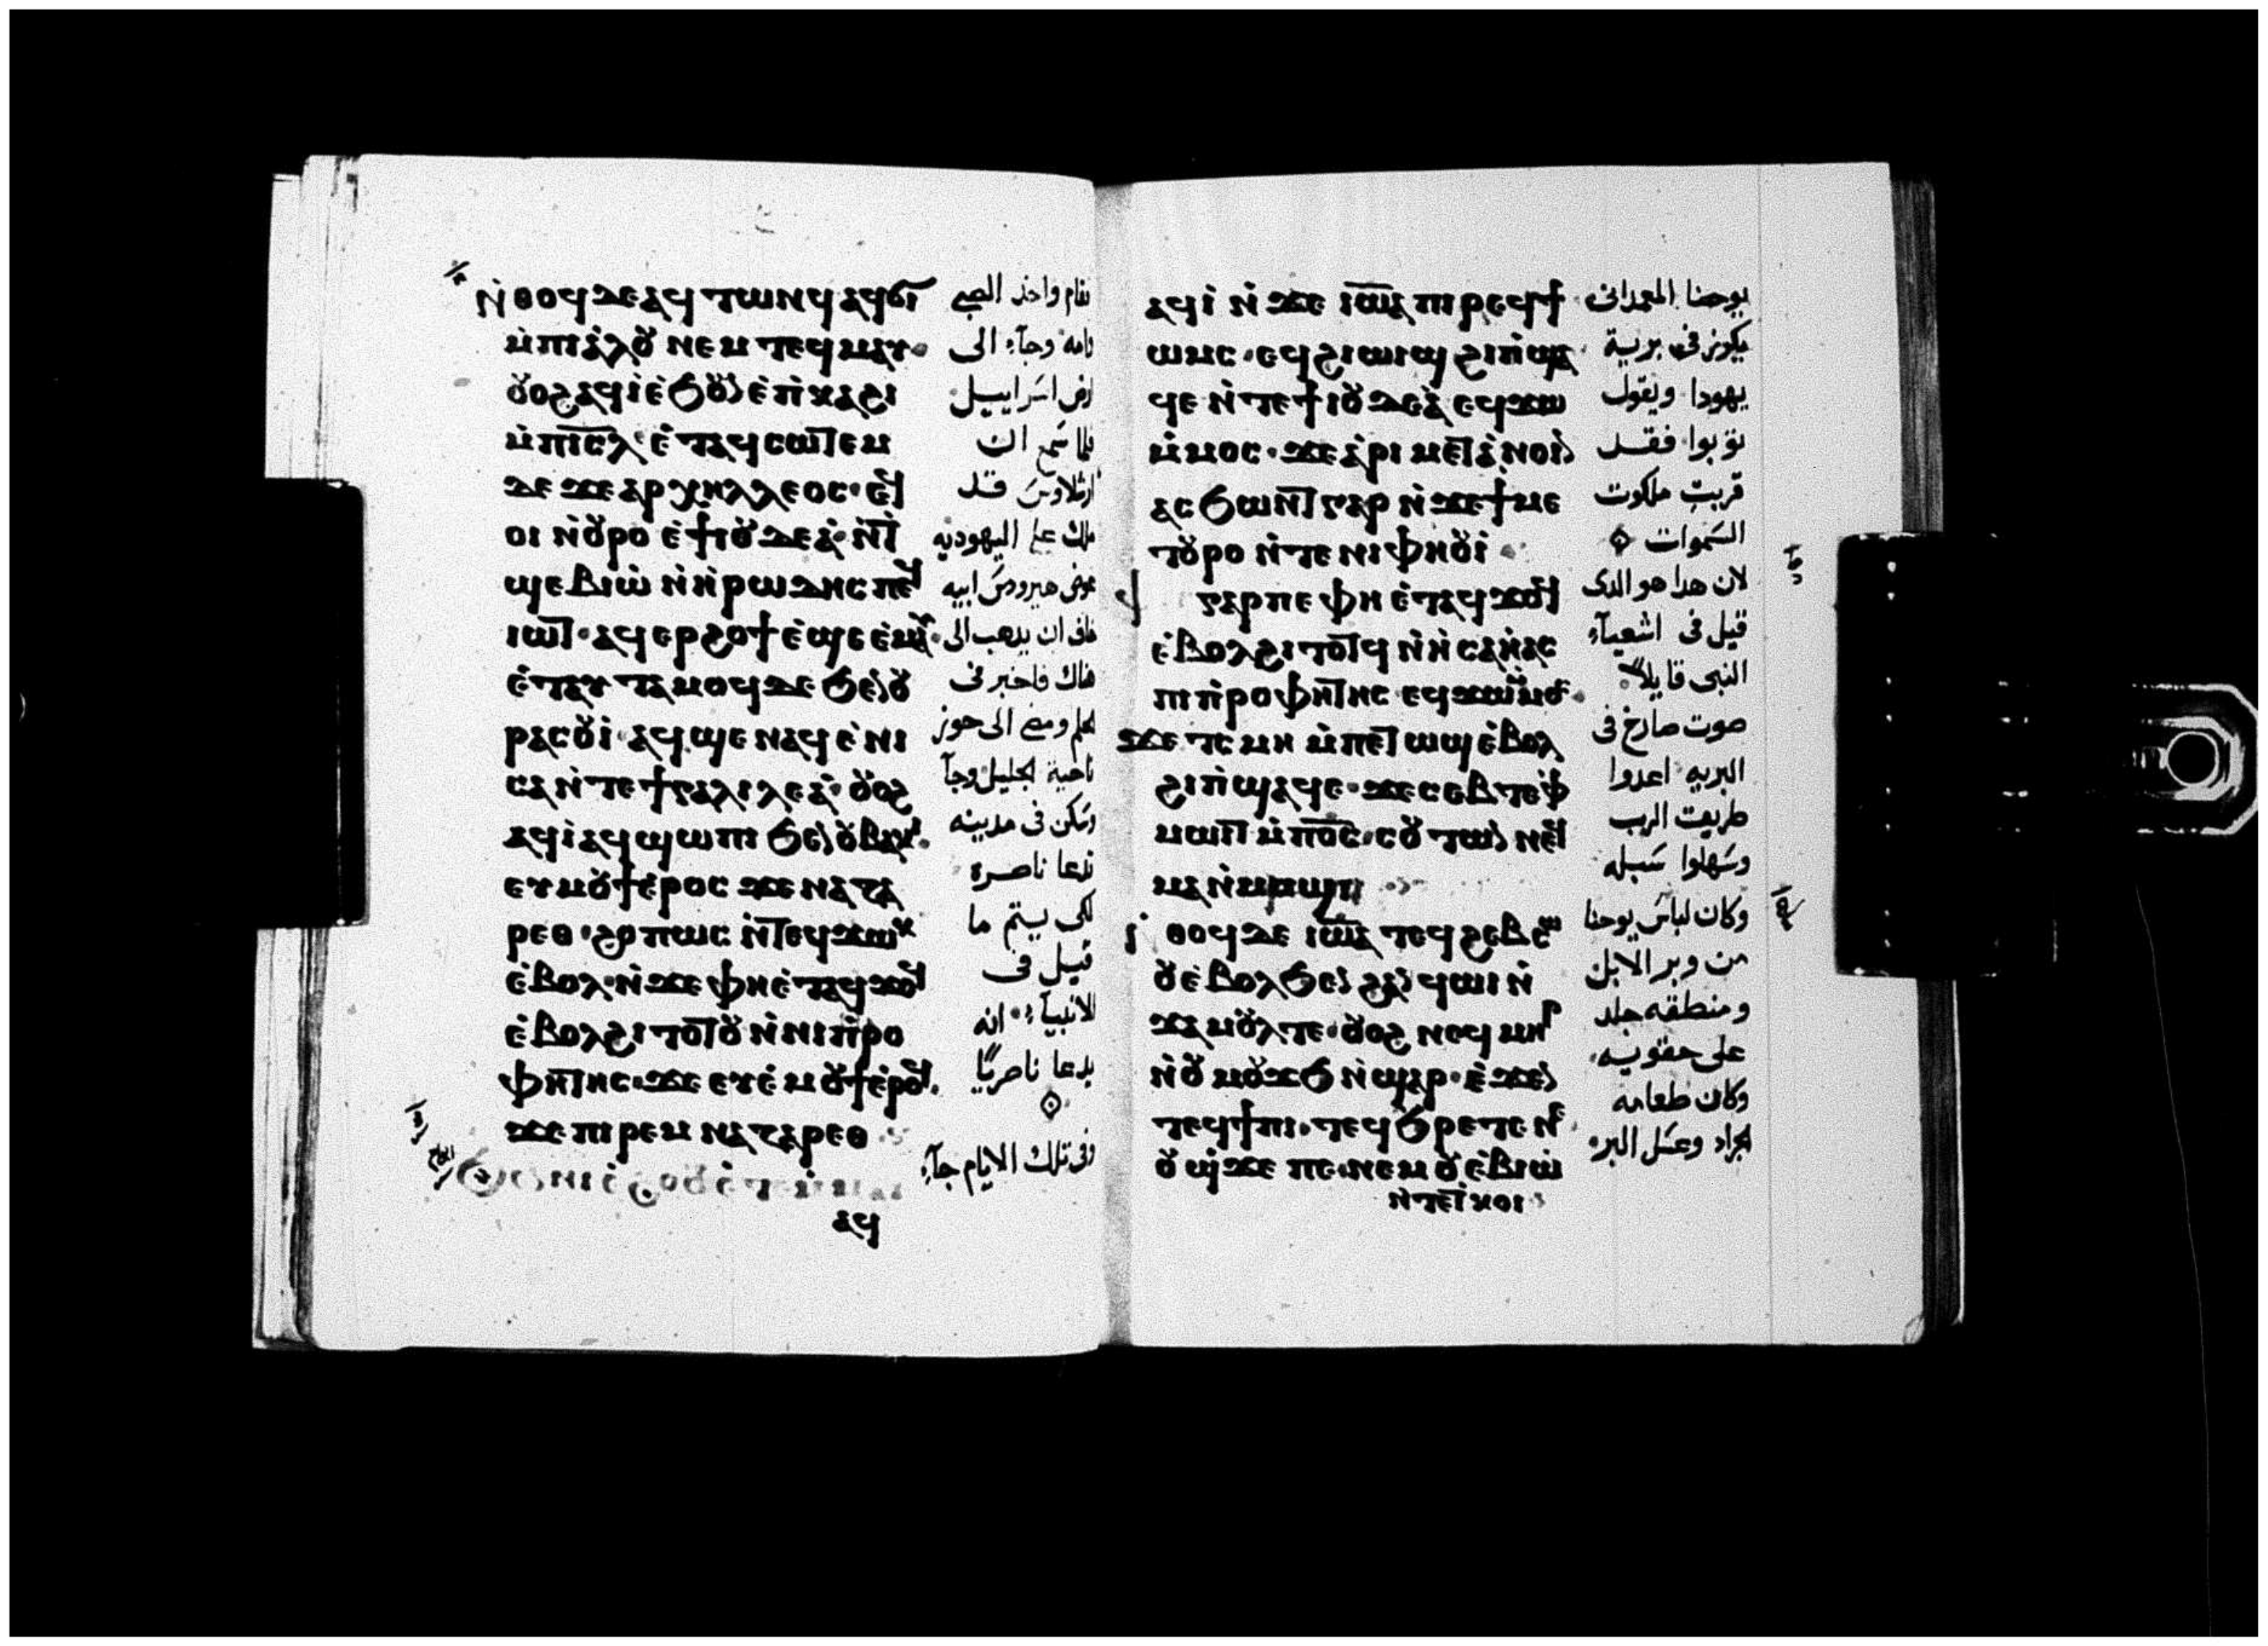 ⲛ̀ⲑⲟϥ ⲇⲉ ⲁϥ ⲧⲱⲛϥ ⲁϥϭⲓ
ⲙ̀ⲡⲓⲁ̀ⲗⲟ⩊ ⲛⲉⲙ ⲧⲉϥ ⲙⲁⲩ
ⲟ⩊ⲟϩ ⲁϥⲓ̀ ⲉ̀ϧⲟ⩊ⲛ ⲉ̀ⲡ̀ⲕⲁϩⲓ
ⲙ̀ⲡⲓⲥ̅ⲗ̅ ⲉ̀ⲧⲁϥ ⲥⲱⲧⲉⲙ
ⲇⲉ ϫⲉ ⲁⲣⲭⲏⲗⲗⲉⲟⲥ
ⲟⲓ ⲛ̀ⲟ⩊ⲣⲟ ⲉ̀ϯⲓⲟ⩊ⲇⲉⲁ̀ ⲛ̀ⲧ
ϣⲉⲃⲓⲱ̀ ⲛ̀ⲏ̀ⲣⲱⲇⲏⲥ ⲡⲉϥ
ⲓⲱⲧ ⲁϥ ⲉⲣϩⲟϯ ⲉ̀ϣⲉ ⲉ̀ⲙⲁⲩ
ⲉ̀ⲧⲁⲩ ⲧⲁⲙⲟϥ ⲇⲉ ϧⲉⲛ ⲟ⩊
ⲣⲁⲥⲟ⩊ⲓ̀ ⲁϥ ϣⲉ ⲛⲁϥ ⲉ̀ⲛⲓ
ⲥⲁ ⲛ̀ⲧⲉ ϯⲅⲁⲗⲓⲗⲉⲁ̀ ⲟ⩊ⲟϩ
ⲁϥⲓ̀ ⲁϥ ϣⲱⲡⲓ ϧⲉⲛ ⲟ⩊ⲃⲁⲕⲓ
ⲉⲩ ⲙⲟ⩊ϯ ⲉ̀ⲣⲟⲥ ϫⲉ ⲛⲁⲍⲁ
ⲣⲉⲑ ϩⲟⲡⲱⲥ ⲛ̀ⲧⲉϥϫⲱⲕ
ⲉ̀ⲃⲟⲗ ⲛ̀ϫⲉ ⲫⲏ ⲉ̀ⲧⲁϥϫⲟϥ
ⲉ̀ⲃⲟⲗ ϩⲓⲧⲟⲧⲟ⩊ ⲛ̀ⲛⲓⲡ̀ⲣⲟ
ⲫⲏⲧⲏⲥ ϫⲉ ⲉⲩⲉ̀ ⲙⲟ⩊ϯ ⲉ̀ⲣⲟϥ
ϫⲉ ⲡⲓⲣⲉⲙ ⲛⲁⲍⲁⲣⲉⲑ
ⲁϥ
فقام واخذ الصبي
وامه وجآء الى
ارض اسراييل
فلما سمع ان
ارشلاوس قد
ملك على اليهوديه
عوض هيرودس ابيه
خاف ان يدهب الى
هناك فاخبر فى
الحلم ومضى الى حوز
ناحية الجليل وجآ
وسكن فى مدينه
تدعا ناصرة
لكى يتم ما
قيل فى
الانبيآء انه
يدعا ناصريًا
وفى تلك الايام جآء
ⲁϥⲓ̀ ⲛ̀ϫⲉ ⲓⲱⲁ ⲡⲓⲣⲉϥϯ
ⲱⲙⲥ ⲉϥ ϩⲓⲱⲓϣ ϩⲓ ⲡ̀ϣⲁ
ϥⲉ ⲛ̀ⲧⲉ ϯⲓⲟ⩊ⲇⲉⲁ̀ ⲉϥϫⲱ
ⲙ̀ⲙⲟⲥ ϫⲉ ⲁ̀ⲣⲓ ⲙⲉⲧⲁ̀ⲛⲟⲓⲛ
ⲁⲥϧⲱⲛⲧ ⲅⲁⲣ ⲛ̀ϫⲉ ϯⲙⲉ
ⲧⲟ⩊ⲣⲟ ⲛ̀ⲧⲉ ⲛⲓⲫⲏⲟ⩊ⲓ̀
ⲅⲁⲣ ⲡⲉ ⲫⲏ ⲉ̀ⲧⲁϥϫⲟϥ
ⲉ̀ⲃⲟⲗ ϩⲓⲧⲟⲧϥ ⲛ̀ⲏ̀ⲥⲁⲏ̀ⲁⲥ
ⲡⲓⲡ̀ⲣⲟⲫⲏⲧⲏⲥ ⲉϥϫⲱⲙ̀ⲙⲟⲥ
ϫⲉ ⲧⲥⲙⲏ ⲙ̀ⲡⲉⲧ ⲱϣ ⲉ̀ⲃⲟⲗ
ϩⲓ ⲡ̀ϣⲁϥⲉ ϫⲉ ⲥⲉⲃⲧⲉ ⲫ̀
ⲙⲱⲓⲧ ⲙ̀ⲡⲟ̅ⲥ̅ ⲥⲟ⩊ⲧⲱⲛ ⲛⲉϥ
ⲙⲁ ⲛ̀ⲙⲟϣⲓ
ⲑⲟϥ ⲇⲉ ⲓⲱⲁ ⲧⲉϥ ϩⲉⲃⲥⲱ
ⲟ⩊ ⲉ̀ⲃⲟⲗ ϧⲉⲛ ϩⲁⲛ ϥⲱⲓ ⲛ̀
ϫⲁⲙⲟ⩊ⲗ ⲧⲉ ⲟ⩊ⲟϩ ⲛⲟϥ ⲙⲏϧ
ⲛ̀ⲟ⩊ ⲙⲟ⩊ϫϧ ⲛ̀ϣⲁⲣ ⲉ̀ϫⲉⲛ
ⲧⲉϥϯⲡⲓ ⲧⲉϥϧⲣⲉ ⲧⲉ ⲛⲉ
ⲟ⩊ ϣϫⲉ ⲡⲉ ⲛⲉⲙ ⲟ⩊ ⲉ̀ⲃⲓⲱ̀
ⲛ̀ⲧⲉ ⲧ̀ⲕⲟⲓ
يوحنا المعمدانى
يكرز فى برية
يهودا ويقول
توبوا فقد
قربت ملكوت
السموات
لان هدا هو الدى
قيل فى اشعيآء
النبى قايلاً
صوت صارخ فى
البريه اعدوا
طريق الرب
وسهلوا سبله
وكان لباس يوحنا
من وبر الابل
ومنطقه جلد
على حقويه
وكان طعامه
الجراد وعسل البر